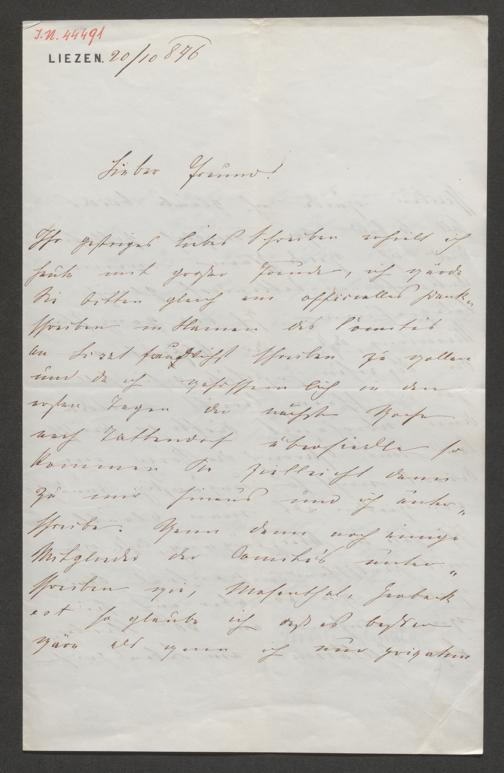 J.N. 44491
LIEZEN. 20/10 876
Lieber Freund!
Ihr gestriges liebes Schreiben erhielt ich
heute mit großer Freude, ich würde
Sie bitten gleich ein officielles Dank-
schreiben im Namen des Comités
an Liszt schreiben zu wollen
und da ich in den
ersten Tagen der nächsten Woche
nach Tattendorf übersiedle so
kommen Sie vielleicht dann
zu mir hinaus und ich unter-
schreibe. Wenn dann noch einige
Mitglieder des Comités unter-
schreiben wie, Mosenthal, Gerbeck
so glaube ich daß es besser
wäre als wenn ich nur privatim